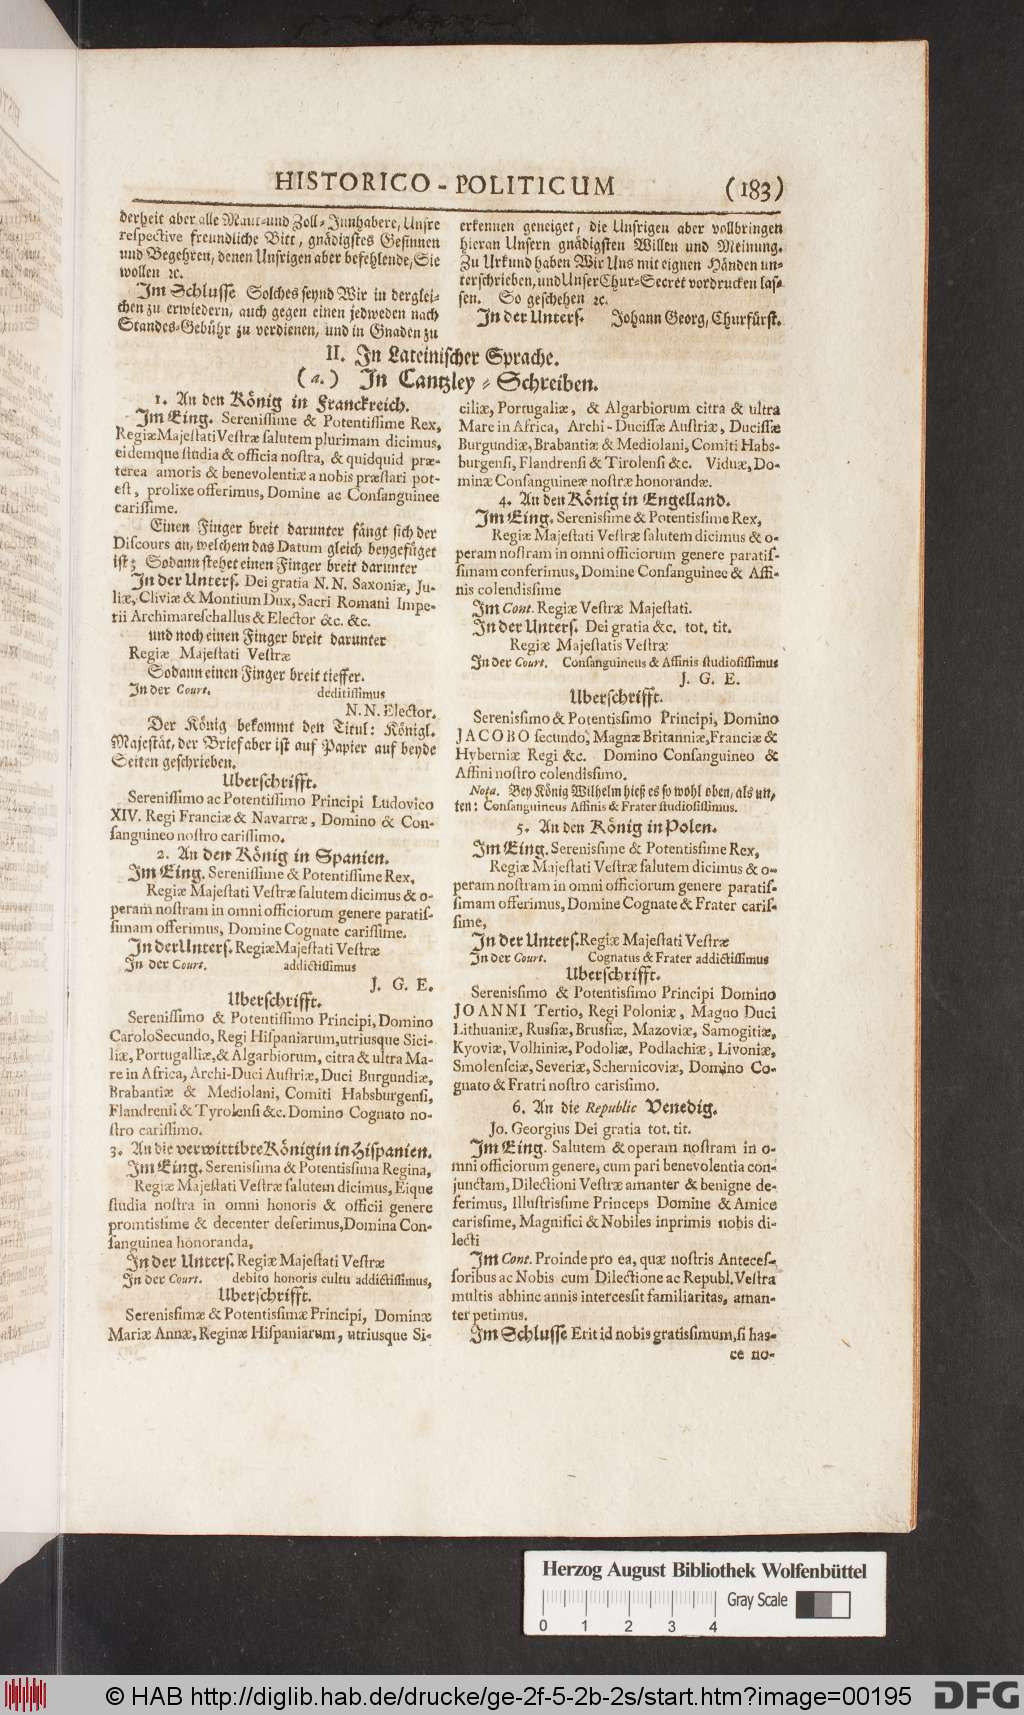 HISTORICO-POLITICUM (183)
derheit aber alle Maut-und Zoll-Innhabere, Unsre
respective freundliche Bitt, gnädigstes Gesinnen
und Begehren, denen Unsrigen aber befehlende, Sie
wollen ꝛc.
Im Schlusse Solches seynd Wir in derglei-
chen zu erwiedern, auch gegen einen jedweden nach
Standes-Gebühr zu verdienen, und in Gnaden zu
erkennen geneiget, die Unsrigen aber vollbringen
hieran Unsern gnädigsten Willen und Meinung.
Zu Urkund haben Wir Uns mit eignen Händen un-
terschrieben, und Unser Chur-Secret vordrucken las-
sen. So geschehen ꝛc.
In der Unters. Johann Georg, Churfürst.
II. In Lateinischer Sprache.
(a.) In Cantzley-Schreiben.
1. An den König in Franckreich.
Im Eing. Serenissime & Potentissime Rex,
Regiæ Majestati Vestræ salutem plurimam dicimus,
eidemque studia & officia nostra, & quidquid præ-
terea amoris & benevolentiæ a nobis præstari pot-
est, prolixe offerimus, Domine ac Consanguinee
carissime.
Einen Finger breit darunter fängt sich der
Discours an, welchem das Datum gleich beygefüget
ist; Sodann stehet einen Finger breit darunter
In der Unters. Dei gratia N. N. Saxoniæ, Ju-
liæ, Cliviæ & Montium Dux, Sacri Romani Impe-
rii Archimareschallus & Elector &c. &c.
und noch einen Finger breit darunter
Regiæ Majestati Vestræ
Sodann einen Finger breit tieffer.
In der Court. deditissimus
N. N. Elector.
Der König bekommt den Titul: Königl.
Majestät, der Brief aber ist auf Papier auf beyde
Seiten geschrieben.
Uberschrifft.
Serenissimo ac Potentissimo Principi Ludovico
XIV. Regi Franciæ & Navarræ, Domino & Con-
sanguineo nostro carissimo.
2. An den König in Spanien.
Im Eing. Serenissime & Potentissime Rex,
Regiæ Majestati Vestræ salutem dicimus & o-
peram nostram in omni officiorum genere paratis-
simam offerimus, Domine Cognate carissime.
In der Unters. Regiæ Majestati Vestræ
In der Court. addictissimus
J. G. E.
Uberschrifft.
Serenissimo & Potentissimo Principi, Domino
Carolo Secundo, Regi Hispaniarum, utriusque Sici-
liæ, Portugalliæ, & Algarbiorum, citra & ultra Ma-
re in Africa, Archi-Duci Austriæ, Duci Burgundiæ,
Brabantiæ & Mediolani, Comiti Habsburgensi,
Flandrensi & Tyrolensi &c. Domino Cognato no-
stro carissimo.
3. An die verwittibte Königin in Hispanien.
Im Eing. Serenissima & Potentissima Regina,
Regiæ Majestati Vestræ salutem dicimus, Eique
studia nostra in omni honoris & officii genere
promtissime & decenter deferimus, Domina Con-
sanguinea honoranda,
In der Unters. Regiæ Majestati Vestræ
In der Court. debito honoris cultu addictissimus,
Uberschrifft.
Serenissimæ & Potentissimæ Principi, Dominæ
Mariæ Annæ, Reginæ Hispaniarum, utriusque Si-
ciliæ, Portugaliæ, & Algarbiorum citra & ultra
Mare in Africa, Archi-Ducissæ Austriæ, Ducissæ
Burgundiæ, Brabantiæ & Mediolani, Comiti Habs-
burgensi, Flandrensi & Tirolensi &c. Viduæ, Do-
minæ Consanguineæ nostræ honorandæ.
4. An den König in Engelland.
Im Eing. Serenissime & Potentissime Rex,
Regiæ Majestati Vestræ salutem dicimus & o-
peram nostram in omni officiorum genere paratis-
simam conferimus, Domine Consanguinee & Affi-
nis colendissime
Im Cont. Regiæ Vestræ Majestati.
In der Unters. Dei gratia &c. tot. tit.
Regiæ Majestatis Vestræ
In der Court. Consanguineus & Affinis studiosissimus
J. G. E.
Uberschrifft.
Serenissimo & Potentissimo Principi, Domino
JACOBO secundo, Magnæ Britanniæ, Franciæ &
Hyberniæ Regi &c. Domino Consanguineo &
Affini nostro colendissimo.
Nota. Bey König Wilhelm hieß es so wohl oben, als un-
ten: Consanguineus Affinis & Frater studiosissimus.
5. An den König in Polen.
Im Eing. Serenissime & Potentissime Rex,
Regiæ Majestati Vestræ salutem dicimus & o-
peram nostram in omni officiorum genere paratis-
simam offerimus, Domine Cognate & Frater caris-
sime,
In der Unters. Regiæ Majestati Vestræ
In der Court. Cognatus & Frater addictissimus
Uberschrifft.
Serenissimo & Potentissimo Principi Domino
JOANNI Tertio, Regi Poloniæ, Magno Duci
Lithuaniæ, Russiæ, Brussiæ, Mazoviæ, Samogitiæ,
Kyoviæ, Volhiniæ, Podoliæ, Podlachiæ, Livoniæ,
Smolensciæ, Severiæ, Schernicoviæ, Domino Co-
gnato & Fratri nostro carissimo.
6. An die Republic Venedig.
Jo. Georgius Dei gratia tot. tit.
Im Eing. Salutem & operam nostram in o-
mni officiorum genere, cum pari benevolentia con-
junctam, Dilectioni Vestræ amanter & benigne de-
ferimus, Illustrissime Princeps Domine & Amice
carissime, Magnifici & Nobiles inprimis nobis di-
lecti
Im Cont. Proinde pro ea, quæ nostris Anteces-
soribus ac Nobis cum Dilectione ac Republ. Vestra
multis abhinc annis intercessit familiaritas, aman-
ter petimus.
Im Schlusse Erit id nobis gratissimum, si has-
ce no-
Herzog August Bibliothek Wolfenbüttel
Gray Scale
0 1 2 3 4
© HAB http://diglib.hab.de/drucke/ge-2f-5-2b-2s/start.htm?image=00195
DFG